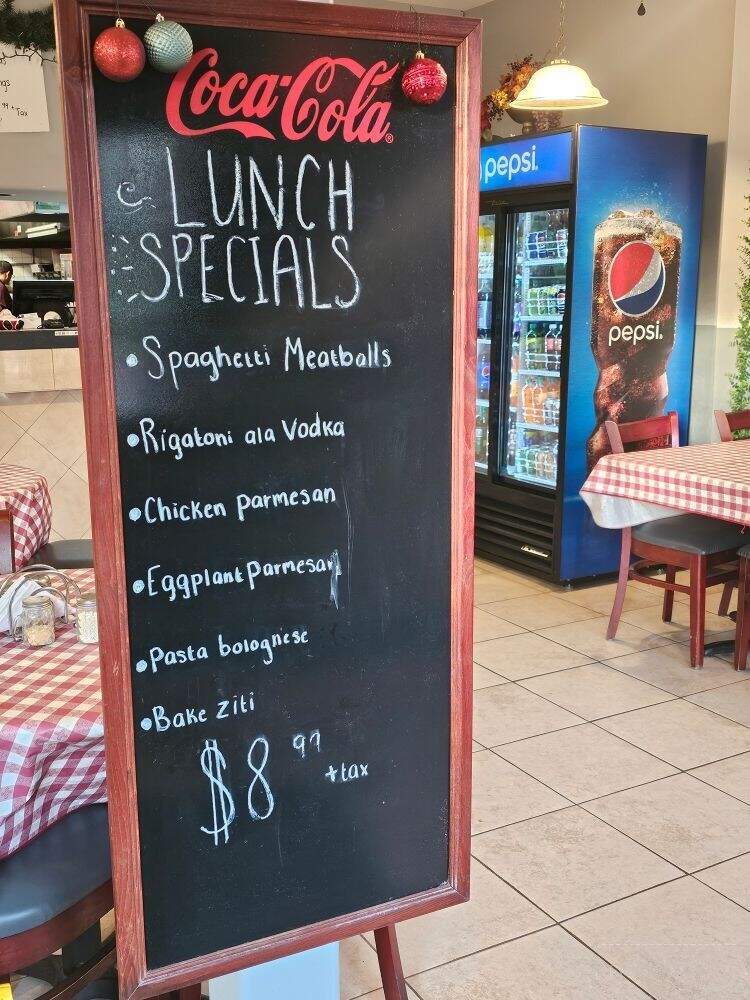 Coca-Cola
LUNCH
SPECIALS
• Spaghetti Meatballs
• Rigatoni ala Vodka
• Chicken parmesan
• Eggplant parmesan
• Pasta bolognese
• Bake Ziti
$8 99
+tax
pepsi
pepsi
Tax